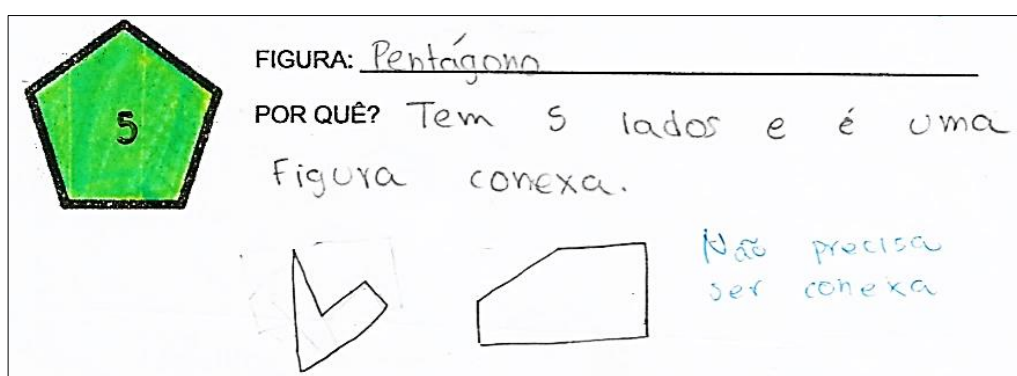 5
FIGURA: Pentágono
POR QUÊ? Tem 5 lados e é uma
Figura conexa.
Não precisa
ser conexa